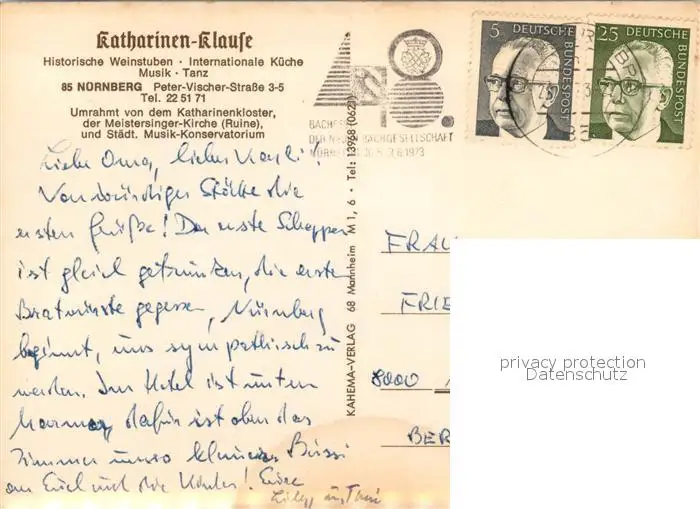 Katharinen-Klause
Historische Weinstuben · Internationale Küche
Musik · Tanz
85 NÜRNBERG Peter-Vischer-Straße 3-5
Tel. 22 51 71
Umrahmt von dem Katharinenkloster,
der Meistersinger-Kirche (Ruine),
und Städt. Musik-Konservatorium
5 DEUTSCHE BUNDESPOST
25 DEUTSCHE BUNDESPOST
BACHGESELLSCHAFT
Liebe Oma, lieber
Von würdiger Stätte die
ersten Grüße! Der erste Schoppen
ist gleich getrunken, die ersten
Bratwürste gegessen, Nürnberg
beginnt, uns sympathisch zu
werden. Im Hotel ist unten
Marmor, dafür ist oben das
Zimmer umso kleiner. Bussi
an Euch und die Kinder! Eure
KAHEMA-VERLAG 68 Mannheim M 1, 6 · Tel: 13968 (0621)
FRAU
FRIE
8000
BER
privacy protection
Datenschutz